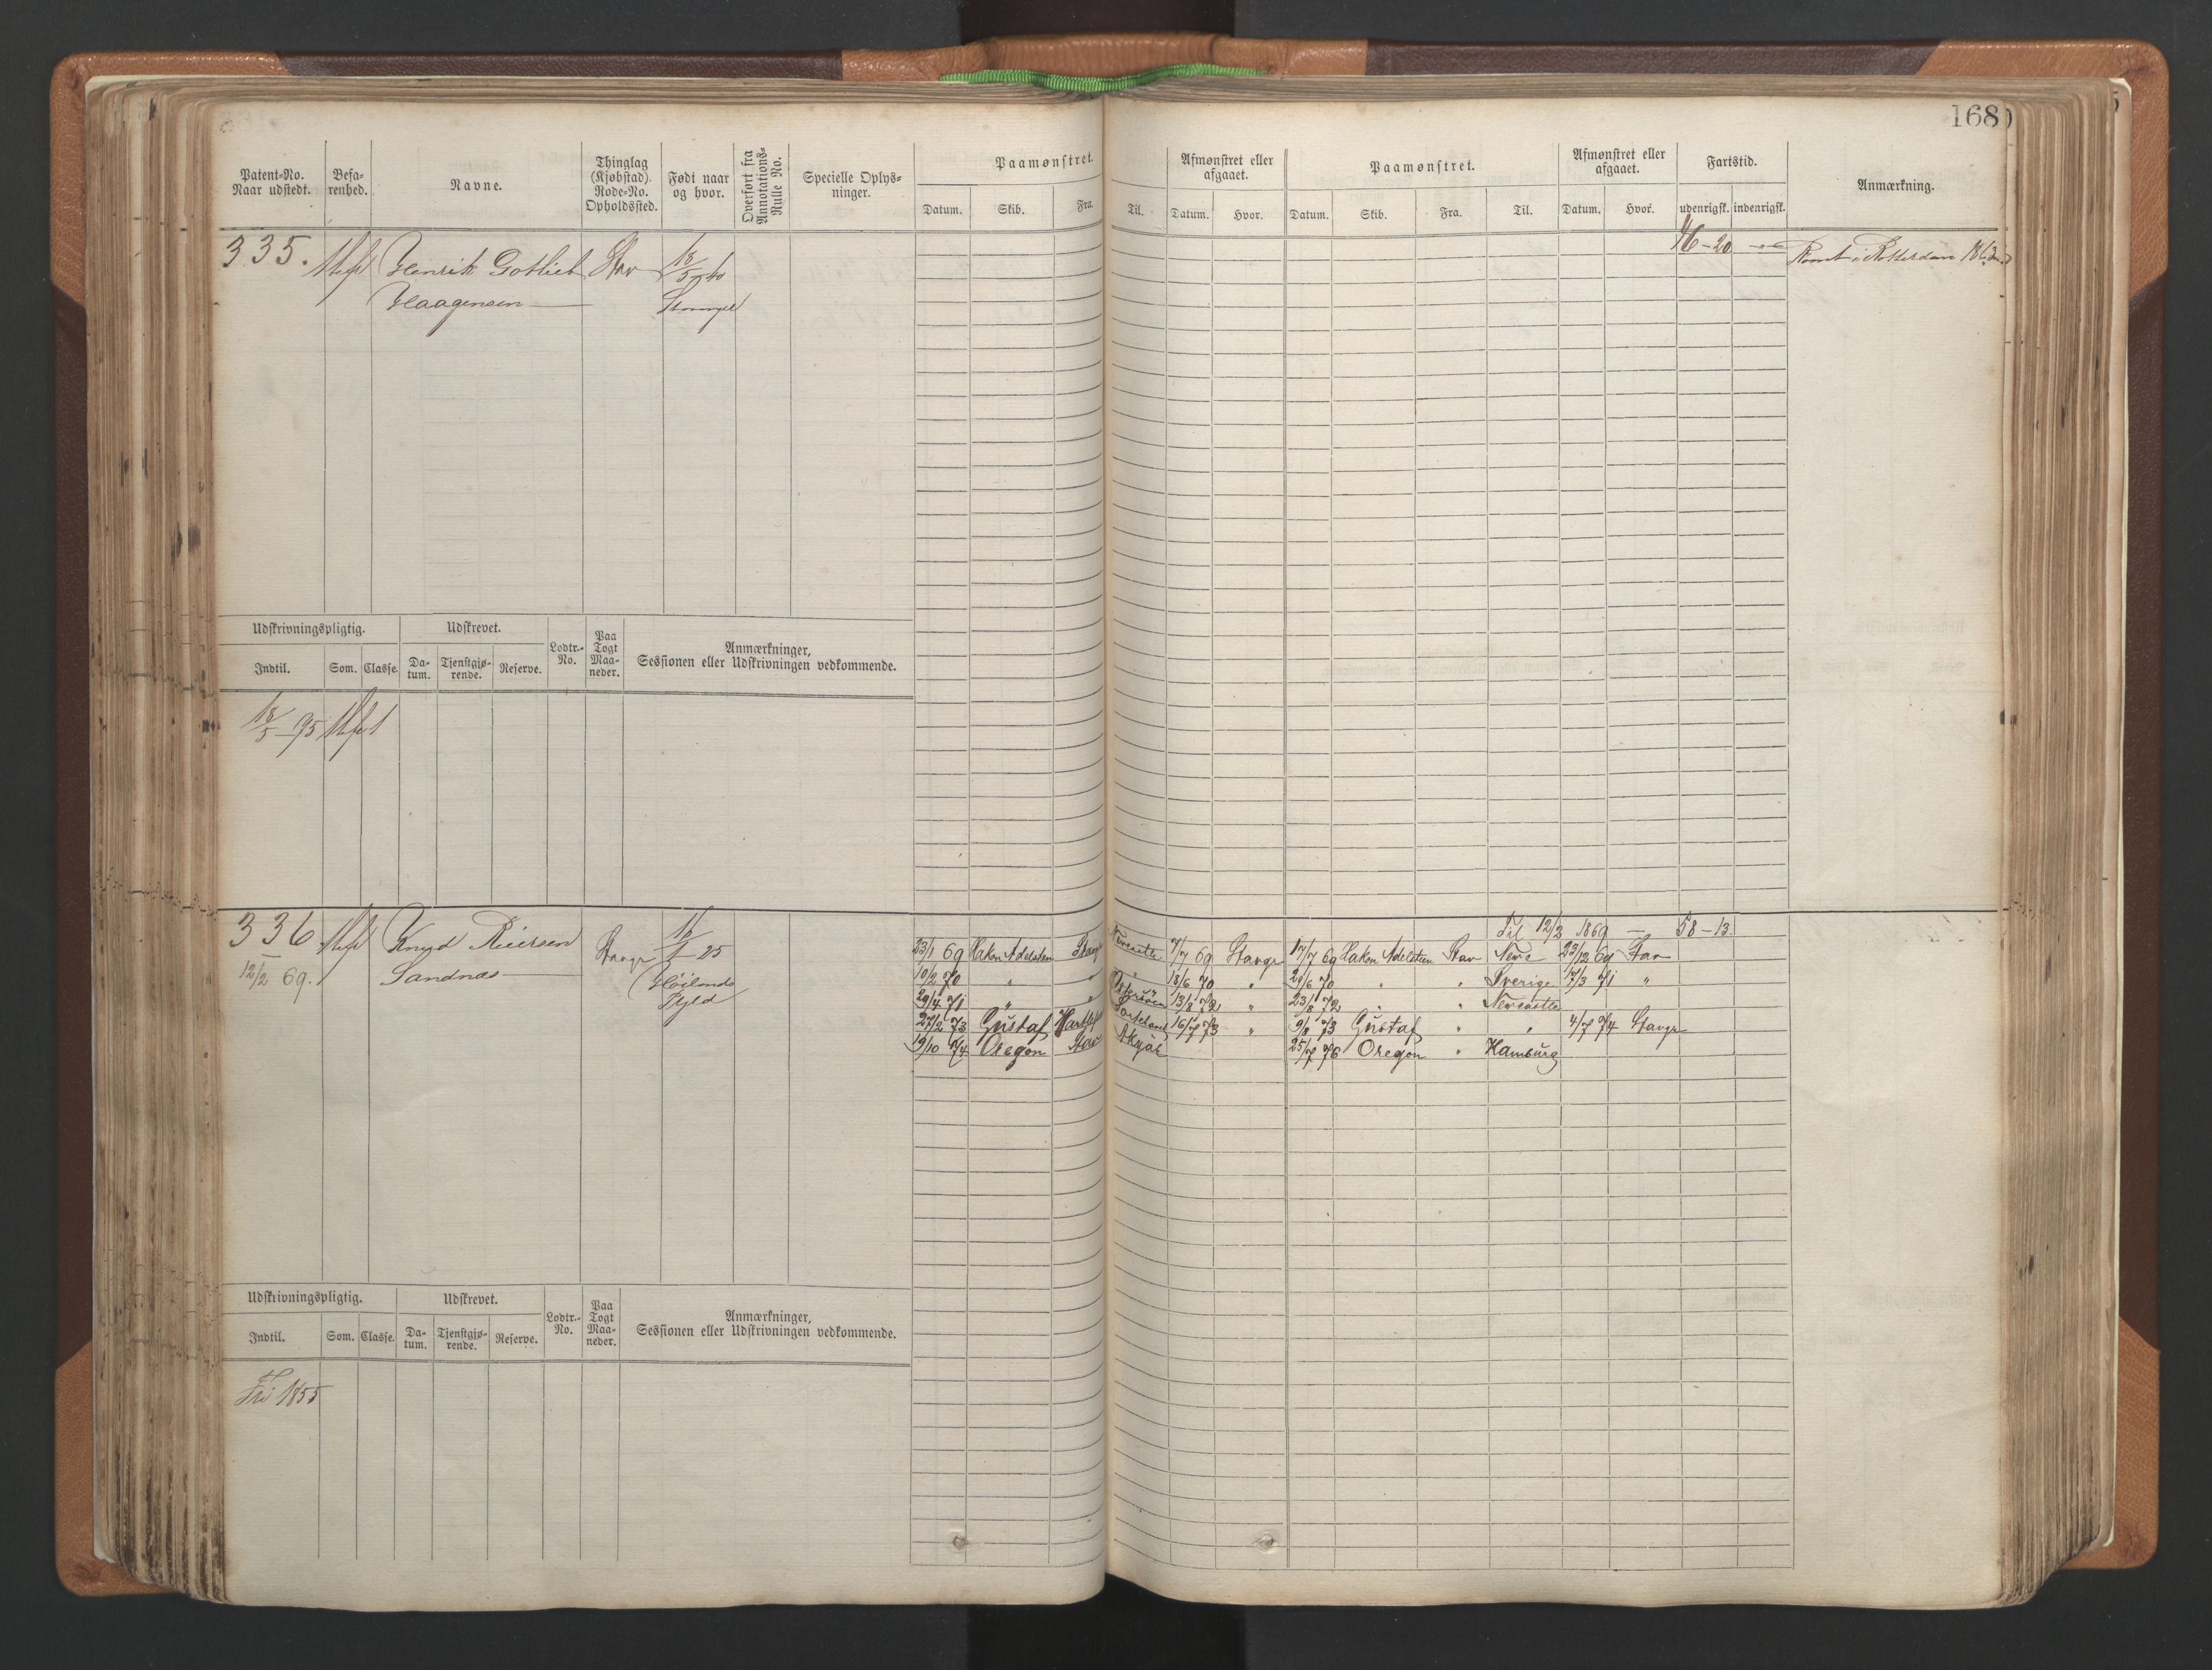 168
Patent-No. Naar udstedt.
Befa-renhed.
Navne.
Thinglag (Kjøbstad). Rode-No. Opholdssted.
Født naar og hvor.
Overført fra Annotations-Rulle No.
Specielle Oplys-ninger.
Paamønstret.
Datum. Skib. Fra. Til.
Afmønstret eller afgaaet.
Datum. Hvor.
Paamønstret.
Datum. Skib. Fra. Til.
Afmønstret eller afgaaet.
Datum. Hvor.
Fartstid.
udenrigsk. indenrigsk.
Anmærkning.
335. Henrik Gotlieb Stav 18/5 40
Haagensen
16-20
Rømt i Rotterdam 1863
Udskrivningspligtig. Udskrevet. Lodtr.-No. Paa Togt Maa-neder. Anmærkninger, Sessionen eller Udskrivningen vedkommende.
Indtil. Som. Classe. Da-tum. Tjenstgjø-rende. Reserve.
18/5 95
336 Knud Reiersen Stavgr 16/1 25
12/2 69. Sandnes Høilands
Til 12/2 1869 — 58-13.
23/1 69 Hakon Adelsten Stavgr Newcastle 7/7 69 Stavgr 17/7 69 Hakon Adelsten Stav Newc 23/12 69 Stav
10/2 70 " " " 18/6 70 " 29/6 70 " " Sverige 17/3 71 "
29/4 71 " " Østersøen 13/8 72 " 23/8 72 " " Newcastle
27/2 73 Gustaf 16/7 73 " 9/8 73 Gustaf " " 4/7 74 Stavgr
19/10 74 Oregon Stav Akyab 25/7 76 Oregon " Hamburg
Udskrivningspligtig. Udskrevet. Lodtr.-No. Paa Togt Maa-neder. Anmærkninger, Sessionen eller Udskrivningen vedkommende.
Indtil. Som. Classe. Da-tum. Tjenstgjø-rende. Reserve.
Fri 1855